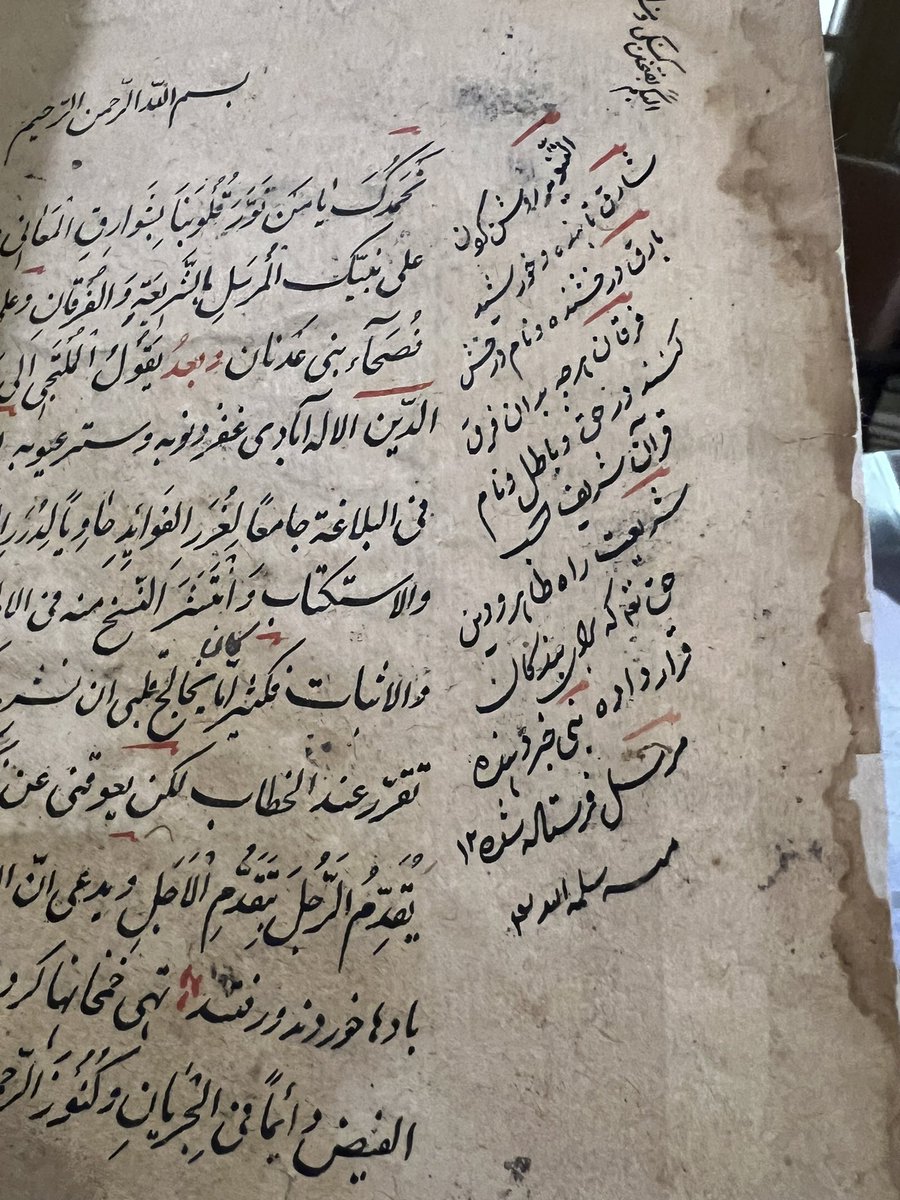 بسم الله الرحمن الرحیم
نَحمَدُکَ یا مَن نَوَّرَ قُلُوبَنَا بِشَوارِقِ المَعَانِی
علی نبیّک المُرسَلِ بالشَّریعَةِ وَالفُرقَانِ وعلی
فُصَحآءِ بنی عَدنان وبعدُ یَقُولُ المُلتَجِی اِلی
الدّین الاله آبادی غفر ذنوبه وستر عیوبه
فی البلاغة جامعًا لِغُرَرِ الفَوائِدِ حَاوِیًا لِدُرَرِ
والاستکتاب وَانتَشَرَ النُّسَخ منه فی
والاثبات فکثیرًا مّا کان یخالج قلبی ان
تقرّر عند الخطاب لکن یعوقنی عن
یُقَدِّمُ الرَّجُلَ بِتَقَدُّمِ الاَجَلِ ویدعی انّ
بادها خوردند ورفتند تهی خمخانها کردند
الفیض دائمًا فی الجَرَیَانِ وکُنُوزَ
التنویر روشن کردن
شارق تابنده وخورشید
بارق درخشنده ونام درخش
فرقان هرچه بدان فرق
کنند در حق وباطل ونام
قرآن شریف است
شریعت راه ظاهر ودین
حق تع که برای بندگان
قرار داده نبی خبر دهنده
مرسل فرستاده شده ۱۲
منه سلمه الله